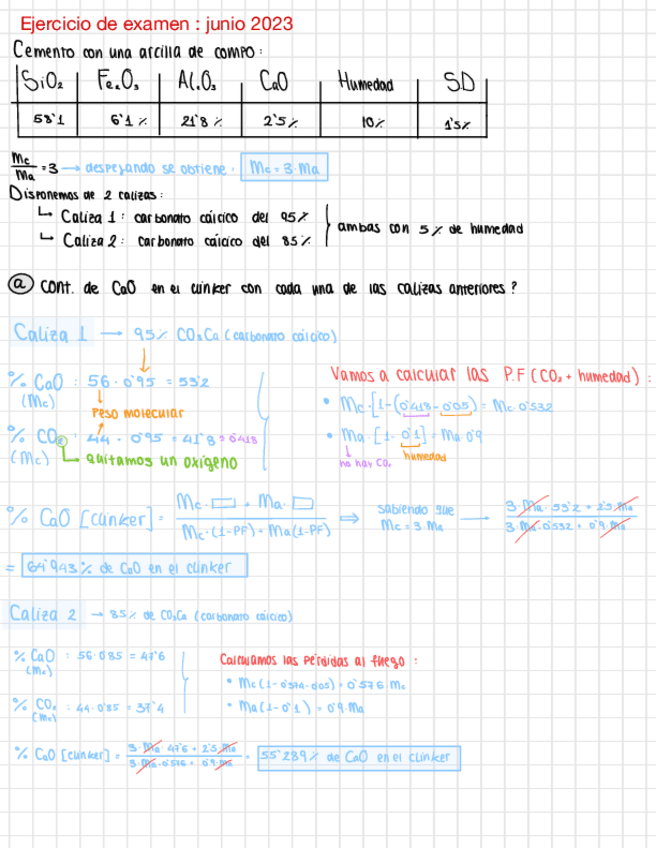 Ejercicio de examen : junio 2023
Cemento con una arcilla de compo :
SiO₂ Fe₂O₃ Al₂O₃ CaO Humedad SD
58'1 6'1 % 21'8 % 2'5 % 10% 1'5%
Mc/Ma = 3 → despejando se obtiene : Mc = 3·Ma
Disponemos de 2 calizas :
↳ Caliza 1 : carbonato cálcico del 95%
↳ Caliza 2 : carbonato cálcico del 85%
ambas con 5% de humedad
a) Cont. de CaO en el clinker con cada una de las calizas anteriores ?
Caliza 1 → 95% CO₃Ca (carbonato cálcico)
% CaO : 56 · 0'95 = 53'2
(Mc)
Peso molecular
% CO₂ : 44 · 0'95 = 41'8 = 0'418
(Mc) ↳ quitamos un oxígeno
Vamos a calcular las P.F (CO₂ + humedad) :
• Mc·[1-(0'418-0'05) = Mc·0'532
• Ma·[1-0'1] = Ma·0'9
no hay CO₂ humedad
% CaO [clinker] = Mc·▭ + Ma·▭ / Mc·(1-PF) + Ma(1-PF) ⇒ sabiendo que Mc = 3·Ma → 3·Ma·53'2 + 2'5·Ma / 3·Ma·0'532 + 0'9·Ma
= 64'943% de CaO en el clinker
Caliza 2 → 85% de CO₃Ca (carbonato cálcico)
% CaO : 56·0'85 = 47'6
(Mc)
% CO₂ : 44·0'85 = 37'4
(Mc)
Calculamos las pérdidas al fuego :
• Mc(1-0'374-0'05) = 0'576 Mc
• Ma(1-0'1) = 0'9·Ma
% CaO [clinker] = 3·Ma·47'6 + 2'5·Ma / 3·Ma·0'576 + 0'9·Ma = 55'289% de CaO en el clinker